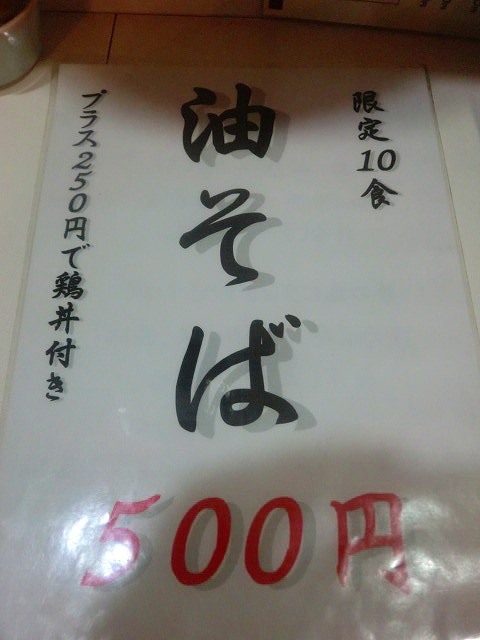 限定10食
油そば
プラス250円で鶏丼付き
500円